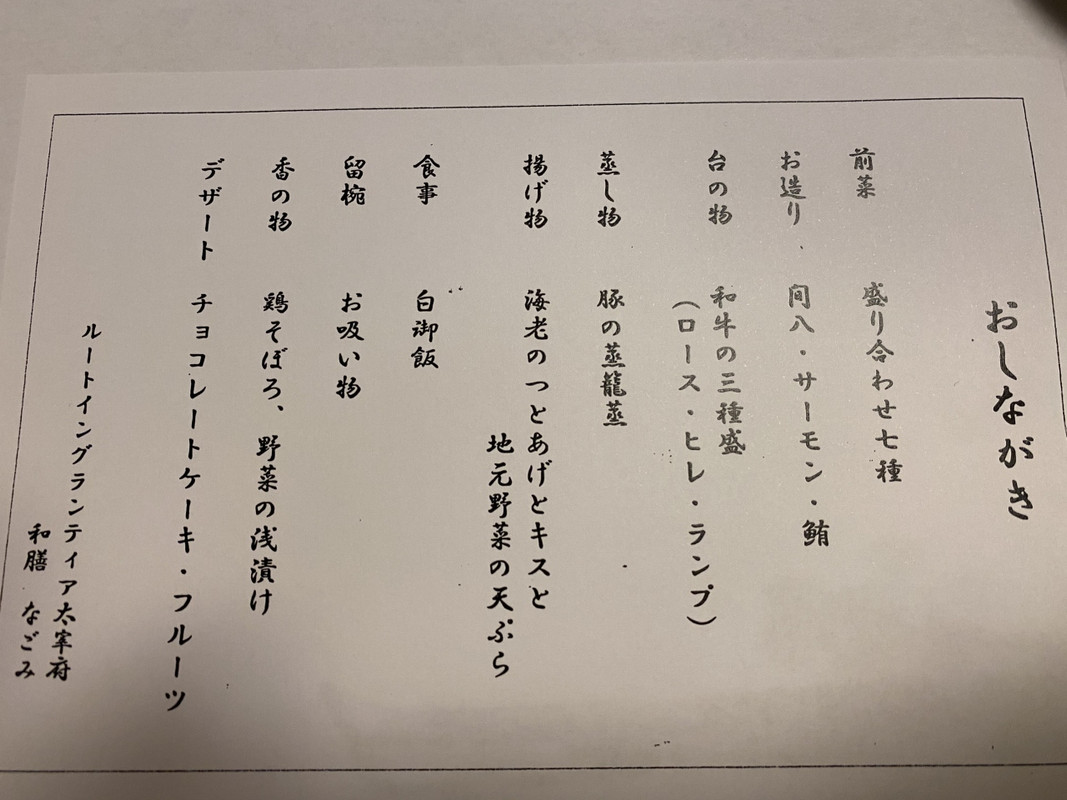 おしながき
前菜　盛り合わせ七種
お造り　間八・サーモン・鮪
台の物　和牛の三種盛
（ロース・ヒレ・ランプ）
蒸し物　豚の蒸籠蒸
揚げ物　海老のつとあげとキスと
地元野菜の天ぷら
食事　白御飯
留椀　お吸い物
香の物　鶏そぼろ、野菜の浅漬け
デザート　チョコレートケーキ・フルーツ
ルートイングランティア太宰府
和膳　なごみ